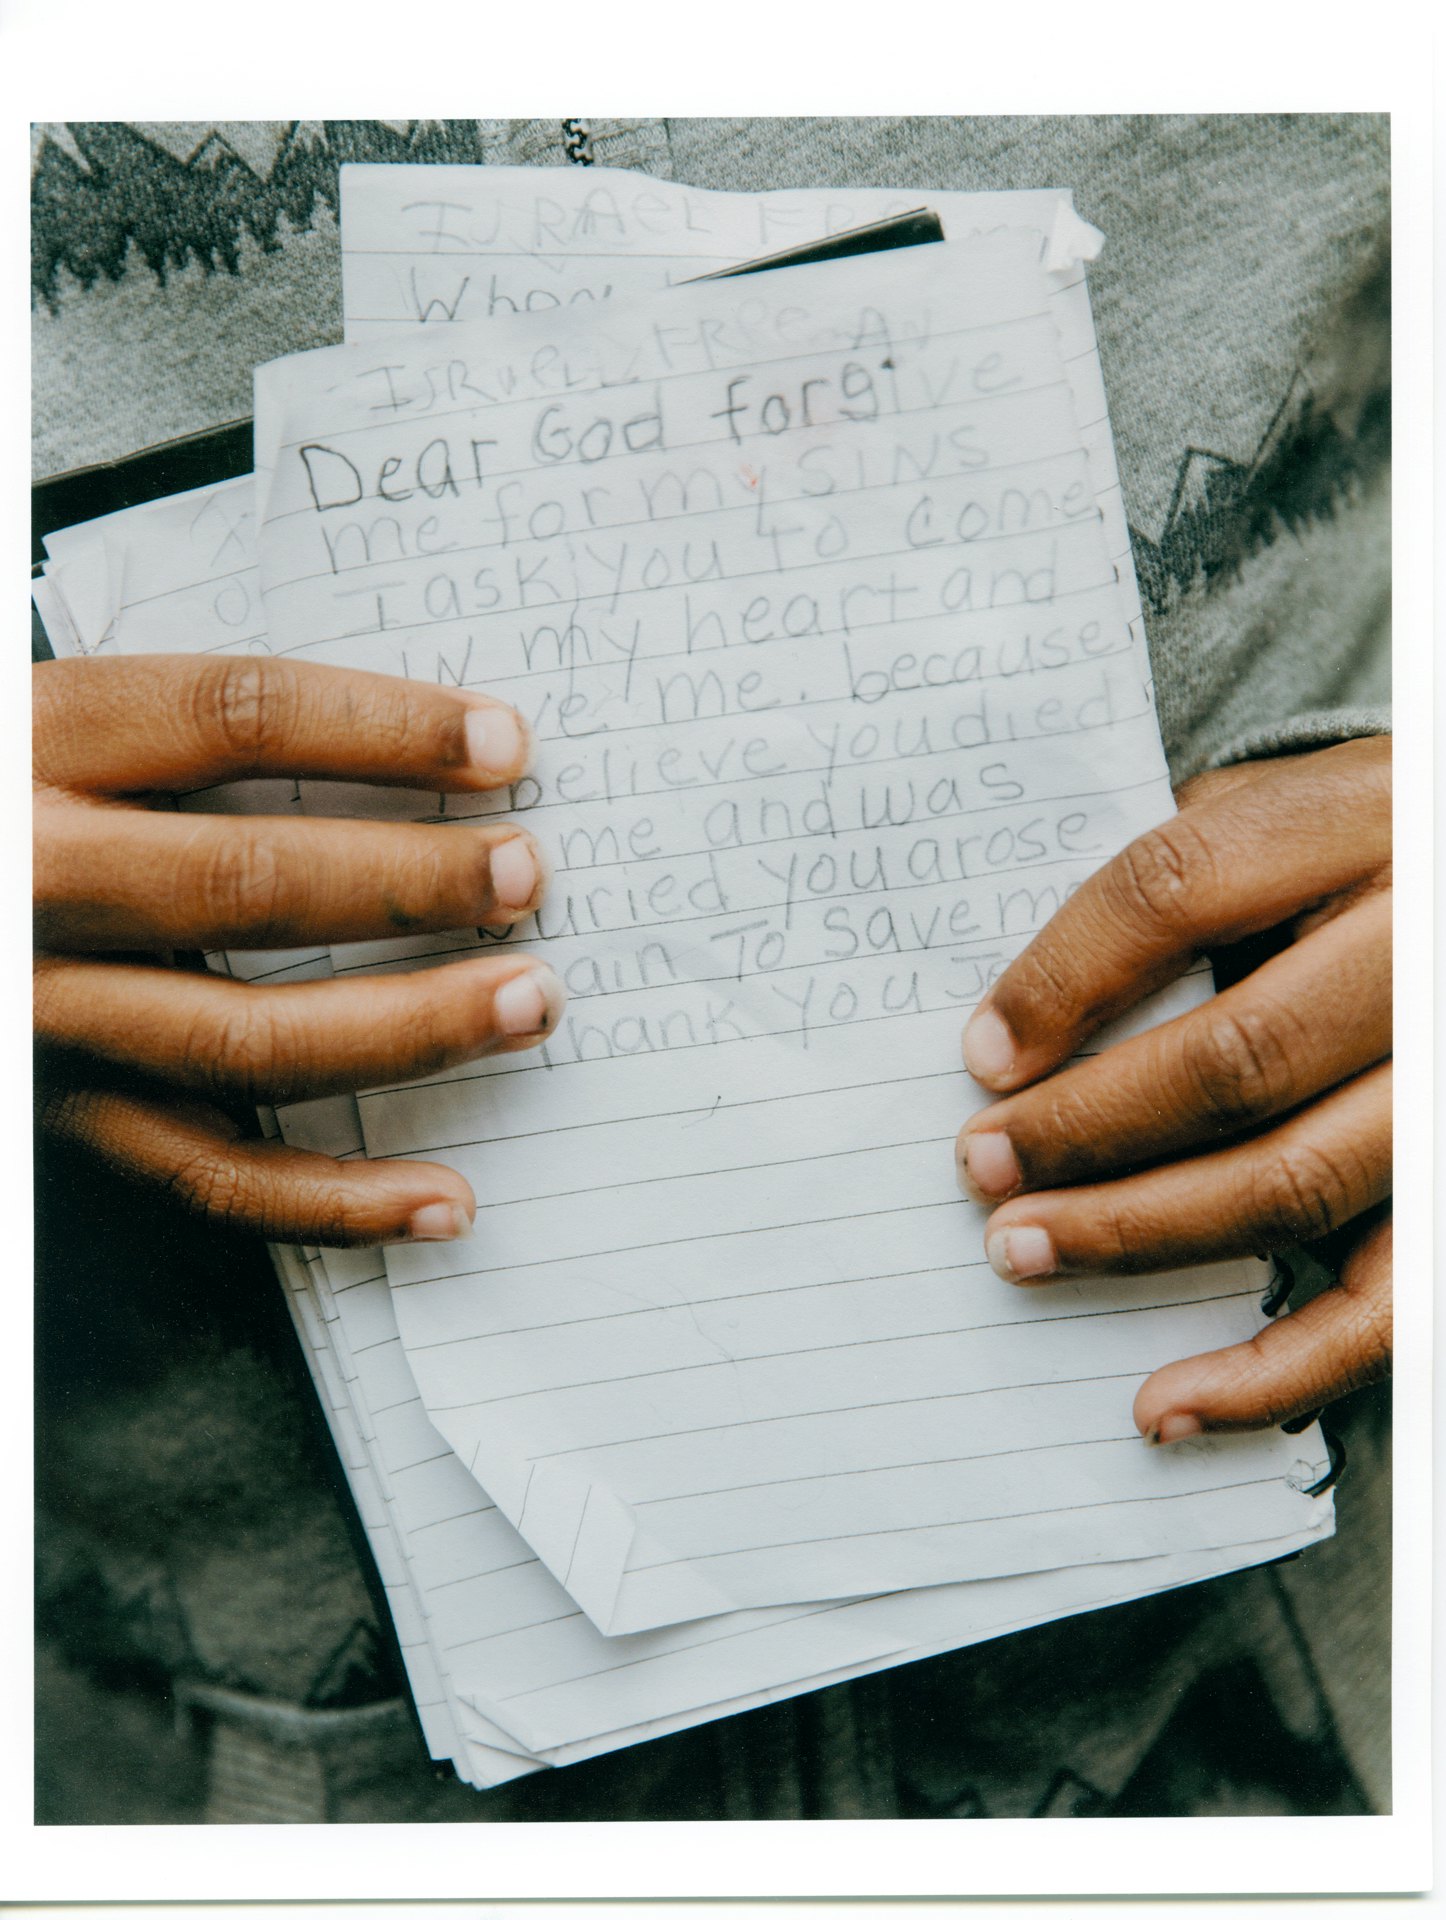 ISRAEL
Whom
ISRAELL FREEMAN
Dear God forgive
me for my SINS
I ask you to come
IN my heart and
ve me. because
believe you died
me and was
buried you arose
ain To save me
Thank you Je